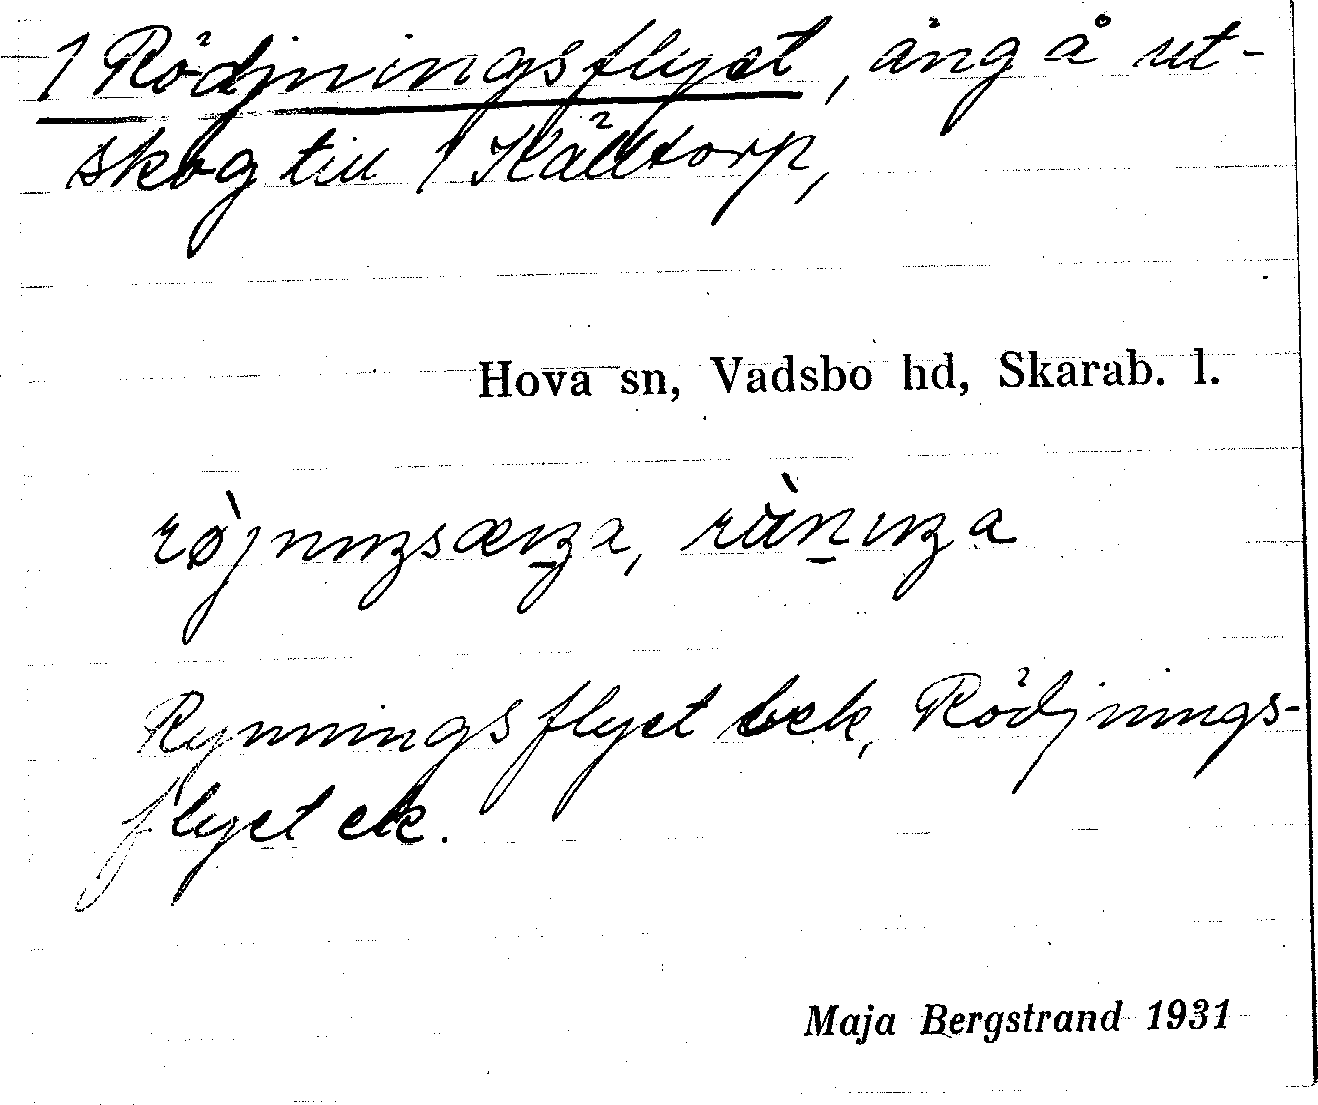 1 Rödjningsflyet, äng å ut-
skog till 1 Källtorp,
Hova sn, Vadsbo hd, Skarab. l.
røjnıŋsæŋa, rùnıŋa
Rynningsflyet bek, Rödjnings-
flyet ek.
Maja Bergstrand 1931